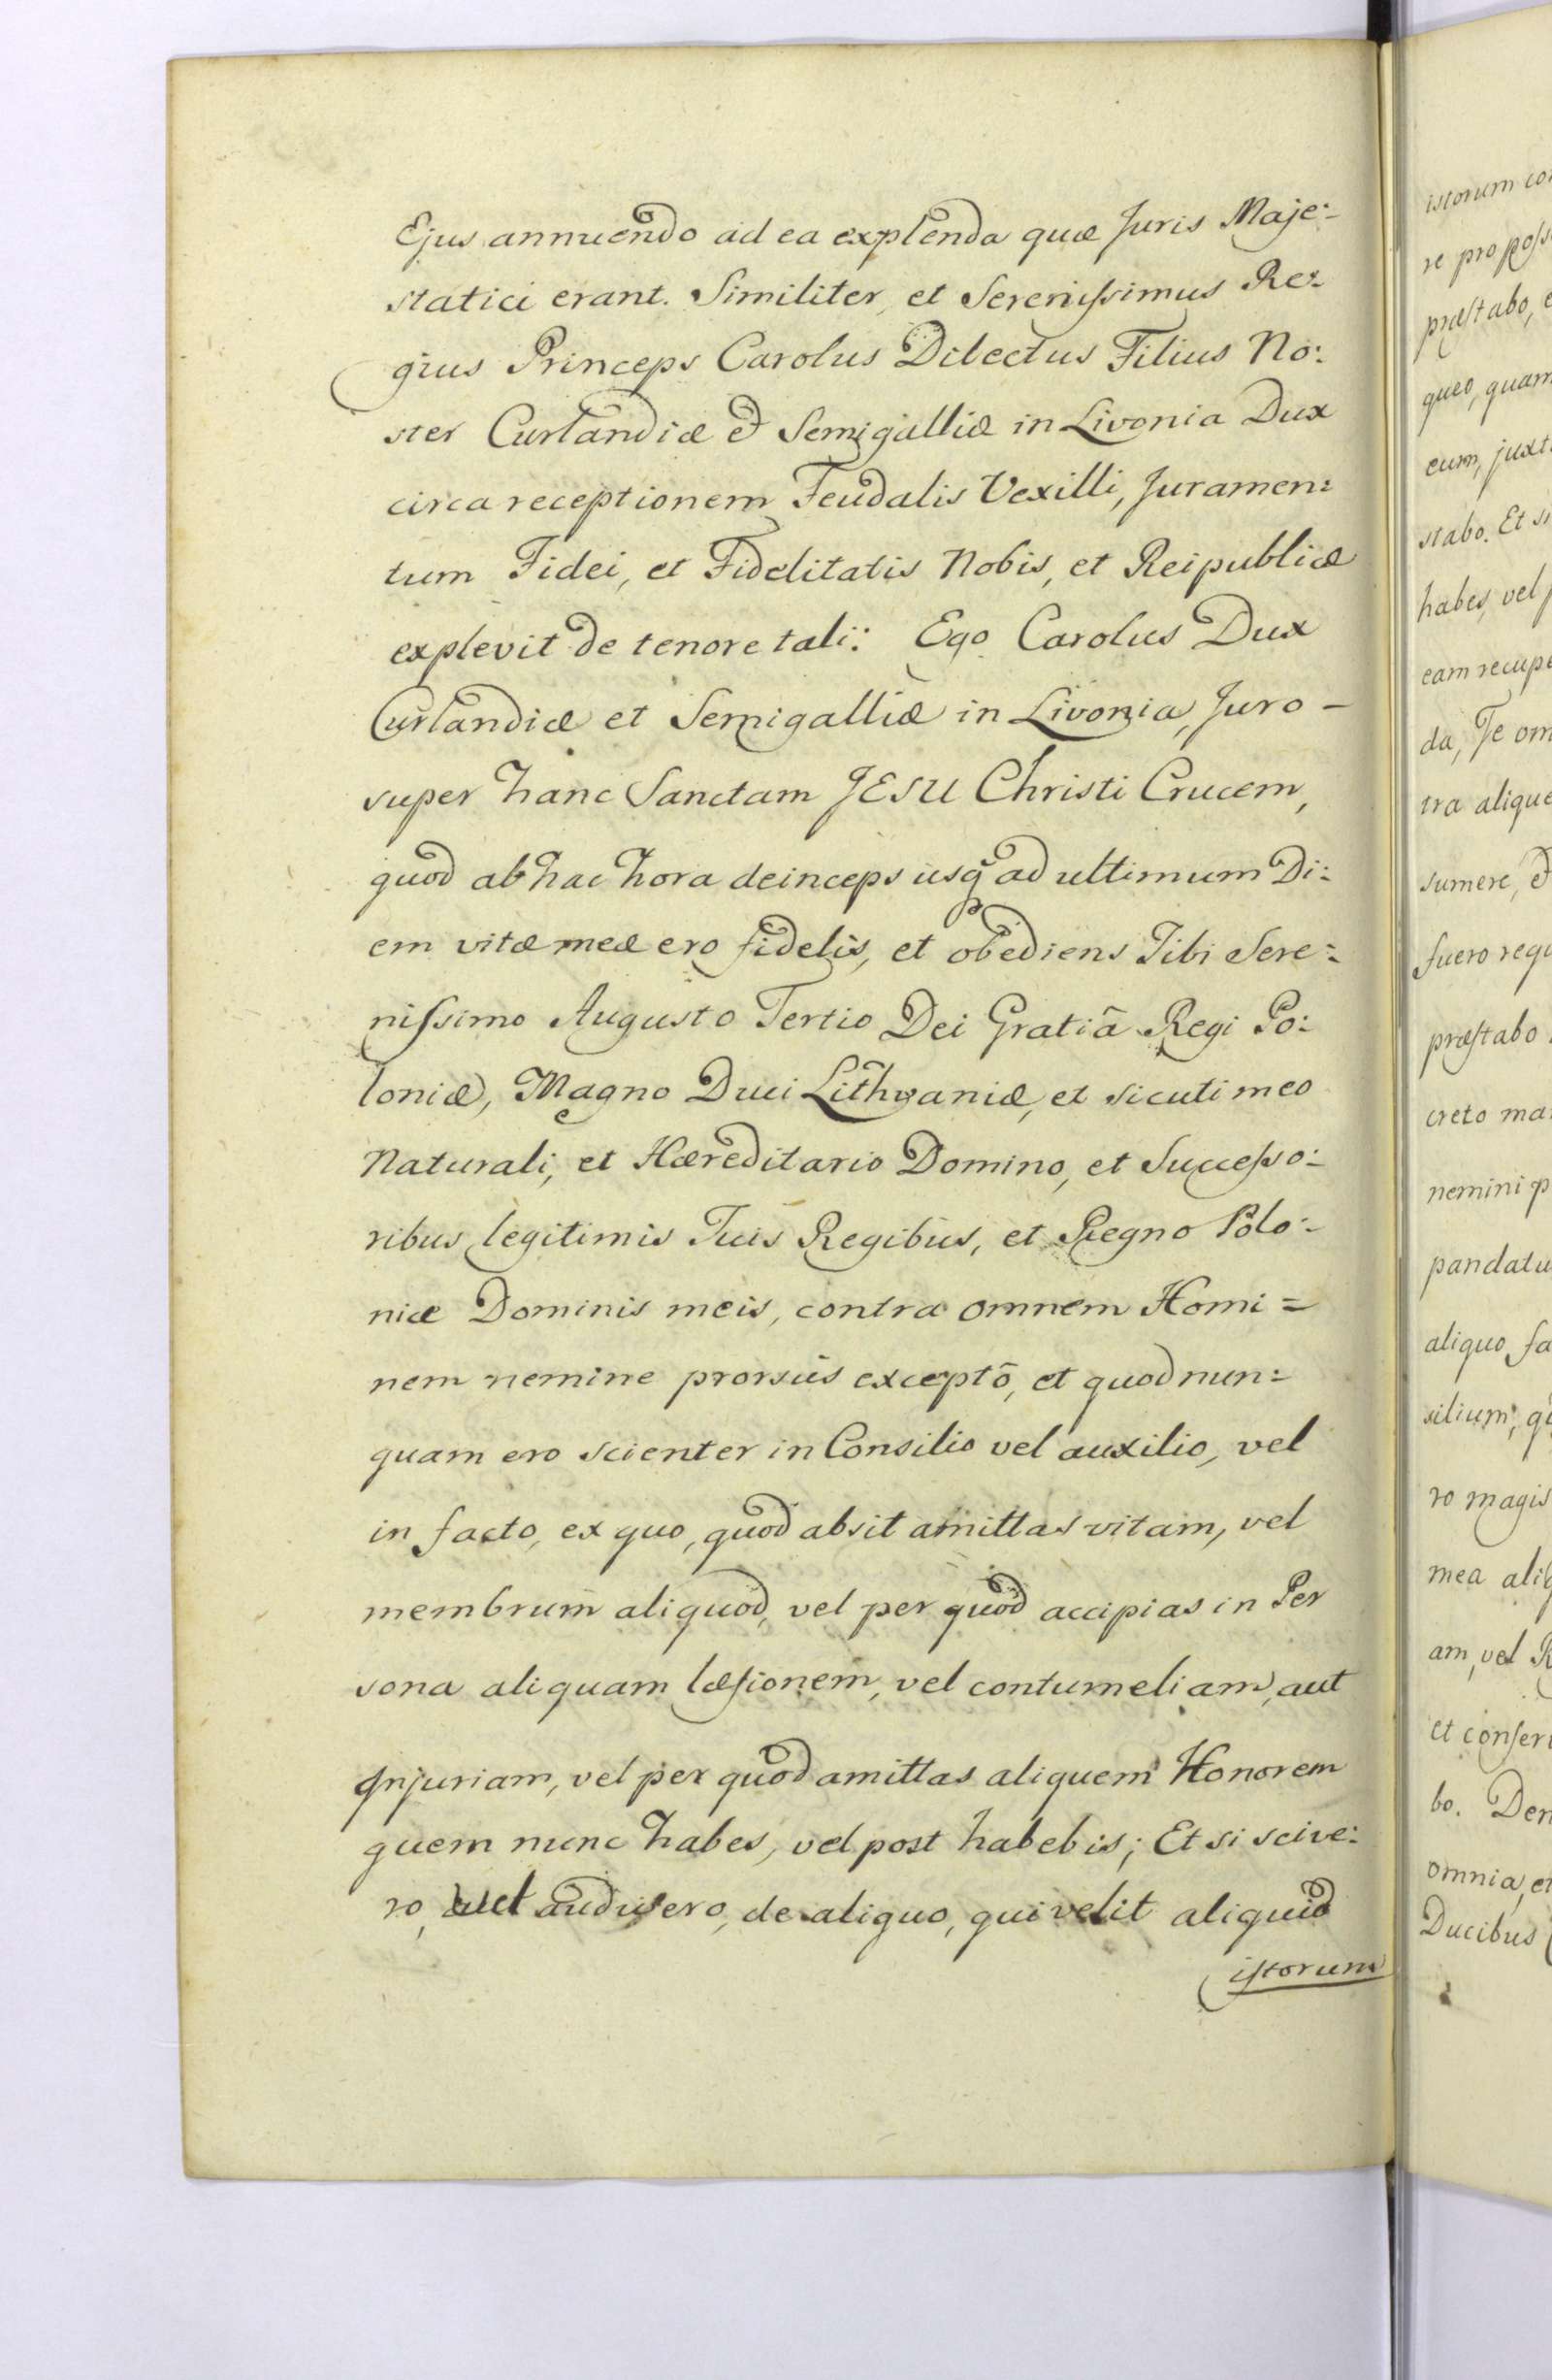 Ejus annuendo ad ea explenda quæ Juris Maje=
statici erant. Similiter, et Serenissimus Re=
gius Princeps Carolus Dilectus Filius No=
ster Curlandiæ et Semigalliæ in Livonia Dux
circa receptionem Feudalis Vexilli, Juramen=
tum Fidei, et Fidelitatis Nobis, et Reipublicæ
explevit de tenore tali: Ego Carolus Dux
Curlandiæ et Semigalliæ in Livonia, Juro -
super hanc Sanctam JESU Christi Crucem,
quod ab hac hora deinceps usq ad ultimum Di=
em vitæ meæ ero fidelis, et obediens Tibi Sere=
nissimo Augusto Tertio Dei Gratiâ Regi Po=
loniæ, Magno Duci Lithvaniæ, et sicuti meo
Naturali, et Hæreditario Domino, et Successo=
ribus legitimis Tuis Regibus, et Regno Polo=
niæ Dominis meis, contra omnem Homi=
nem nemine prorsus exceptô, et quod nun=
quam ero scienter in Consilio vel auxilio, vel
in facto, ex quo, quod absit amittas vitam, vel
membrum aliquod, vel per quod accipias in Per
sona aliquam læsionem, vel contumeliam, aut
Injuriam, vel per quod amittas aliquem Honorem
quem nunc habes, vel post habebis; Et si scive=
ro, vel audivero, de aliquo, qui velit aliquid
istorum
istorum
re pro
præstabo,
queo, quam
eum,
stabo. Et si
habes, vel
eam
da, Te
tra
sumere, et
fuero
præstabo
creto
nemini
aliquo
ro magis
mea
am, vel
et
bo.
omnia, et
Ducibus